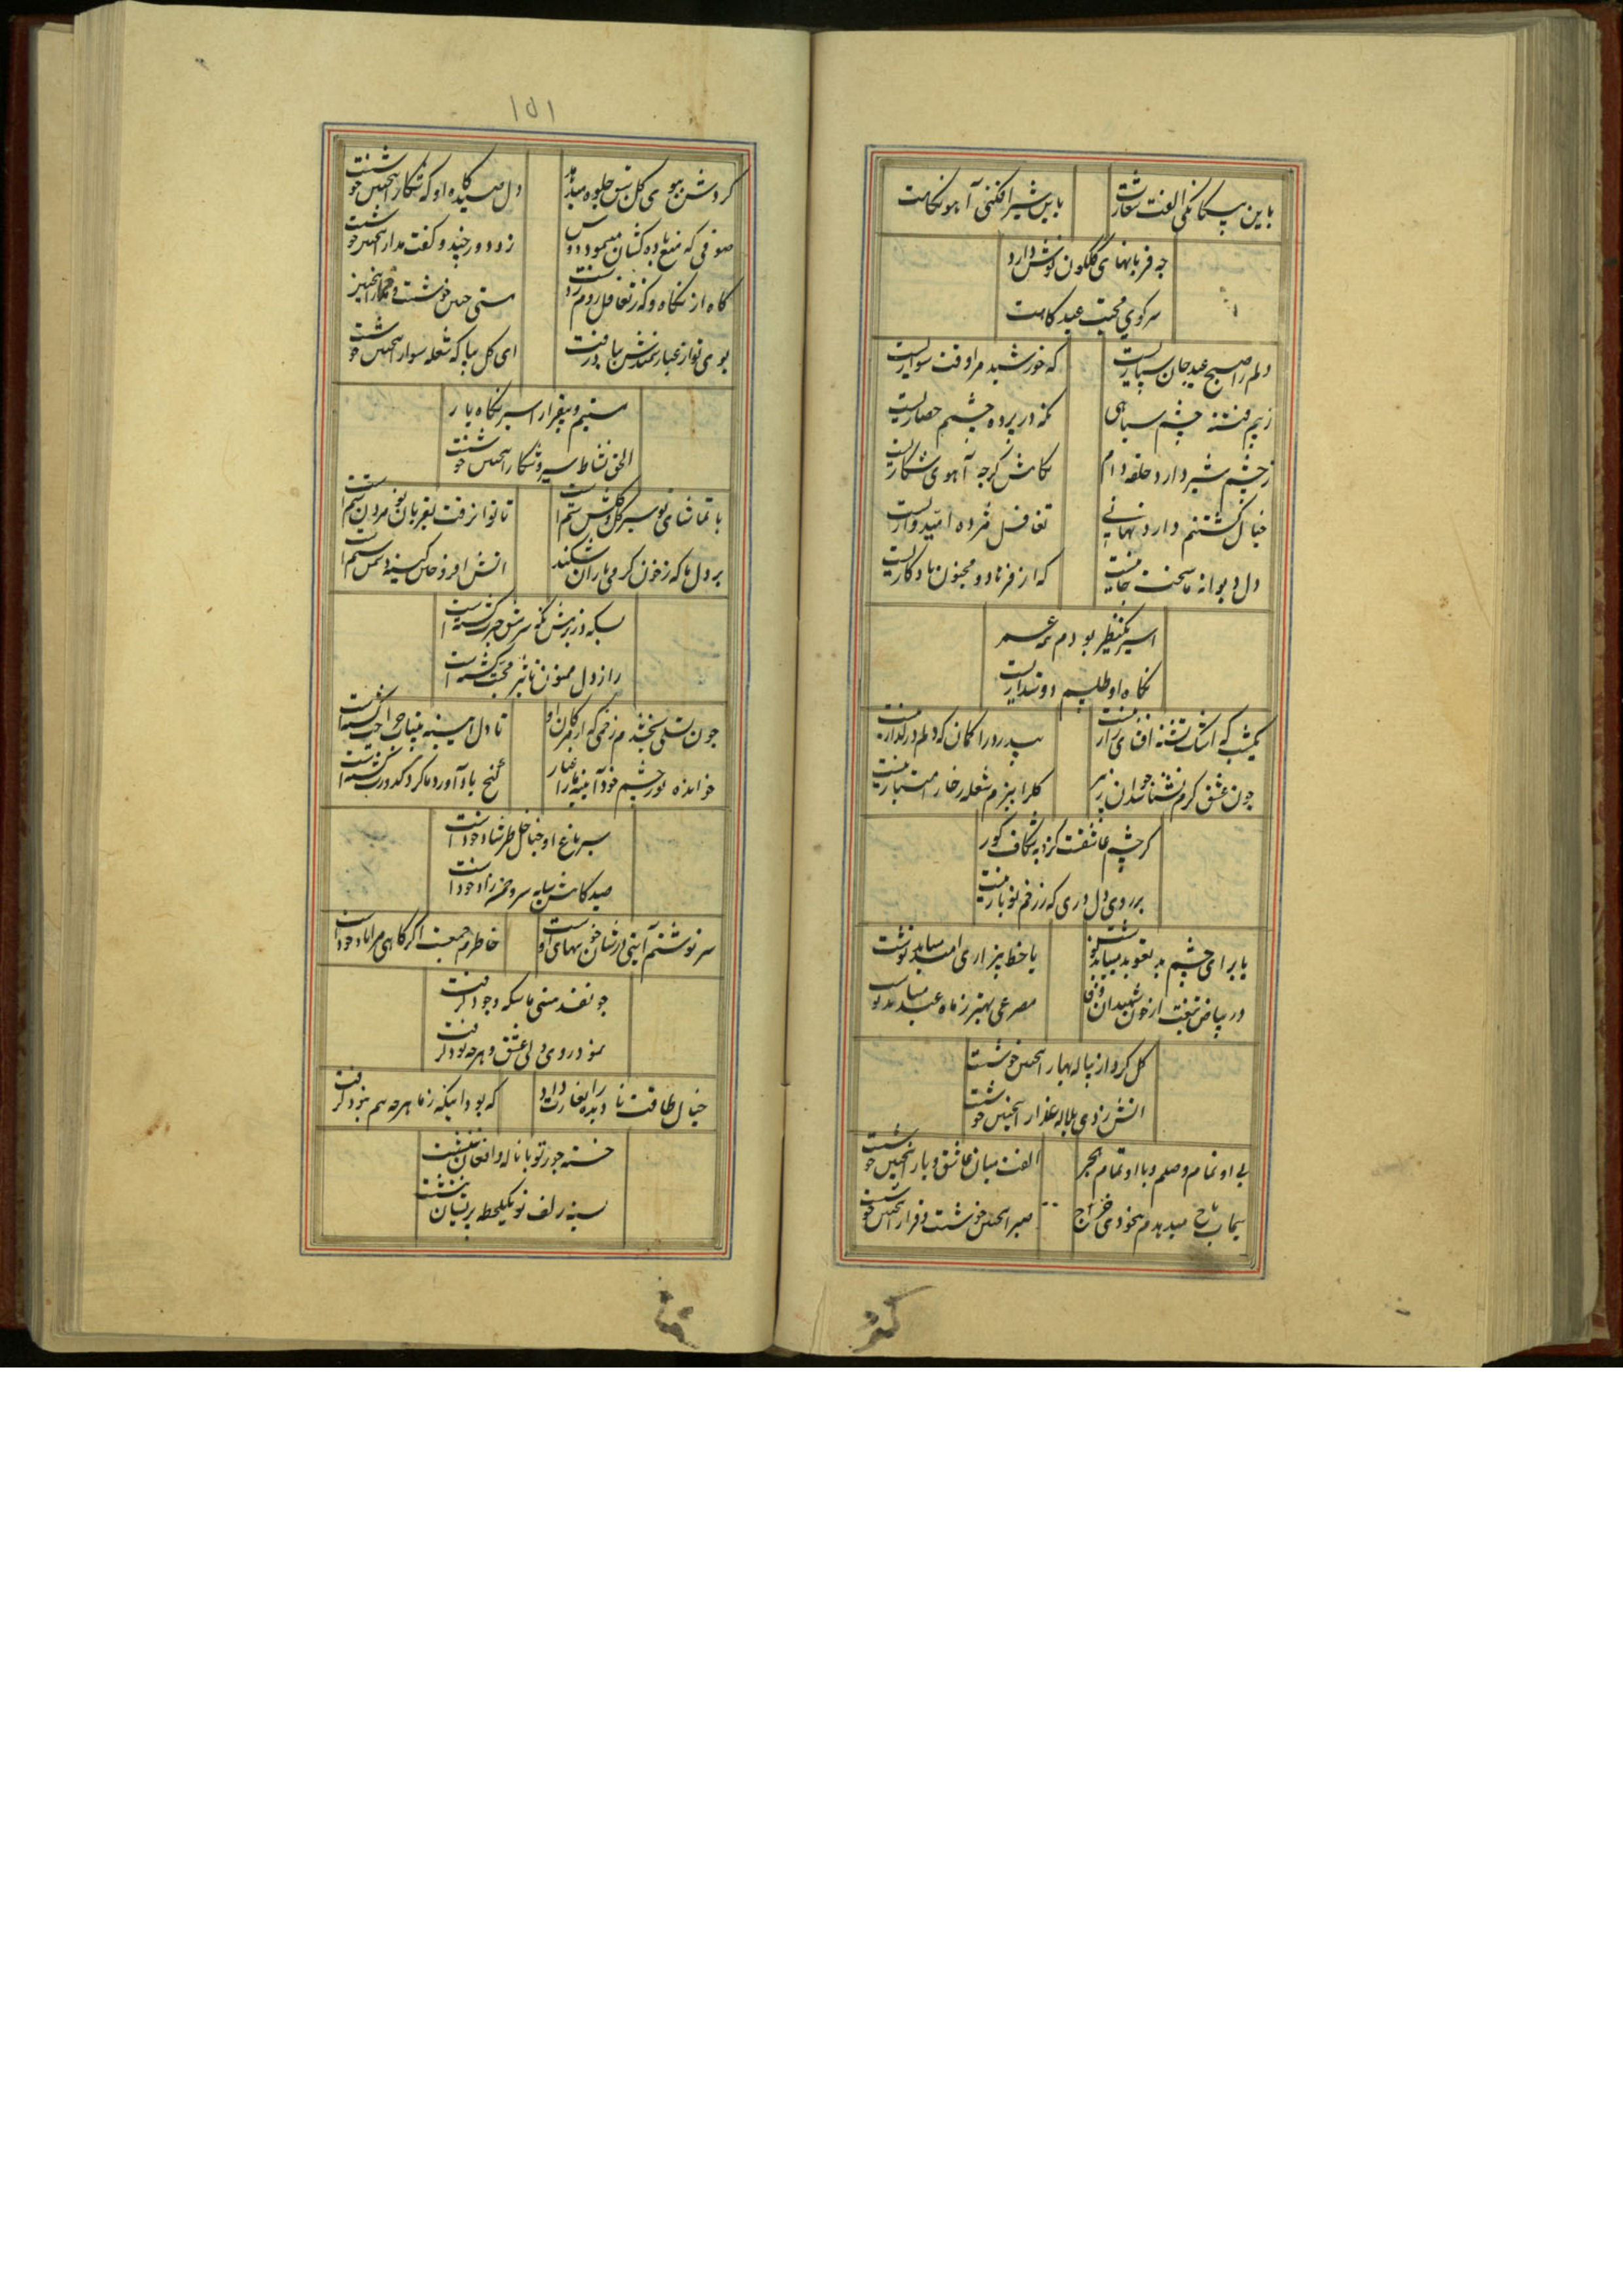 باین بیگانگی الفت شعارست
باین شیر افکنی آهو نگاهست
چه قربانهای گلگون پوش دارد
سر کوی محبت عید کاهست
دلم را صبح عید جان سپاریست
که خورشید مرا وقت سواریست
ز بیم فتنه چشم سیاهی
نگه در پرده چشم حصاریست
ز چشم شیر دارد حلقه دام
نگاهش کرچه آهوی شکاریست
خیال کشتنم دارد نهانی
تغافل مژده امیدواریست
دل دیوانه ما سخت جانیست
که از فرهاد و مجنون یادکاریست
اسیر یکنظر بودم همه عمر
نگاه او طلسم دوستداریست
یکشب که اشک تشنه افشای راز نیست
پی درد را کمان که دلم در کداز نیست
چون عشق کرم نشناسد از پیر
کلرا ببزم شعله رخار امتیاز نیست
کر چشم عاشقت نکرد به شکاف کور
بر روی دل دری که ز زخم تو باز نیست
یا برای چشم بد تعویذ میباید نوشت
یا خط بیزاری امید میباید نوشت
در بیاض تیغت از خون شهیدان وفا
مصرعی بهتر ز ماه عید میباید نوشت
کل کرد از پیاله بهار اینچنین خوشست
آتش زدی بلاله عذار اینچنین خوشست
بی او تمام وصلم و با او تمام هجر
الفت میان عاشق و یار اینچنین خوشست
سیماب باج میدهدم بیخودی خراج
صبر اینچنین خوشست و قرار اینچنین خوشست
۱۵۱
کردش ببوی کل تپش جلوه میدهد
دل صیدکاه او که شکار اینچنین خوشست
صوفی که منع باده کشان مینمود دوس
زد دور چند و کفت مدار اینچنین خوشست
کاه از نگاه و که ز تغافل روم ز دست
مستی چنین خوشست و خمار اینچنین
بوی تو از غبار سمندش بباد رفت
ای کل بیا که شعله سوار اینچنین خوشست
مستیم و بیقرار اسیر نگاه یار
الحق نشاط سیر و شکار اینچنین خوشست
با تماشای تو سیر کل و کلشن ستم است
تا توان رفت بقربان تو مردن ستم است
بر دل ما که ز خون کرمی یاران شکند
آتش افروختن کینه دشمن ستم است
بسکه در بزمش نگه سرمشق حیرت کشته است
راز دل ممنون تاثیر محبت کشته است
چون تسلی بخشدم زخمی که از پیکان او
تا دل از سینه بیتاب جراحت کشته است
خوانده نور چشم خود آیینه ما را غبار
کنج باد آورد ما کرد کدورت کشته است
سیر باغ او خیال خاطر شاد خود است
صید کاهش سایه سرو چمن زاد خود است
سر نوشتم آیتی در شان خونبهای اوست
خاطرم جمعیت اگر کاهی مرا یاد خود است
چو نقد هستی ما سکه وجود گرفت
نمود روی دلی عشق و هر چه بود گرفت
خیال طاقت نا دیده را بغارت داد
که بود اینکه ز ما هر چه هم نبود گرفت
خسته جور تو با ناله و افغان ننشست
بسته زلف تو یکلحظه پریشان ننشست